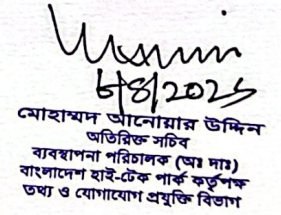 ৮/৪/2025
মোহাম্মদ আনোয়ার উদ্দিন
অতিরিক্ত সচিব
ব্যবস্থাপনা পরিচালক (অঃ দাঃ)
বাংলাদেশ হাই-টেক পার্ক কর্তৃপক্ষ
তথ্য ও যোগাযোগ প্রযুক্তি বিভাগ